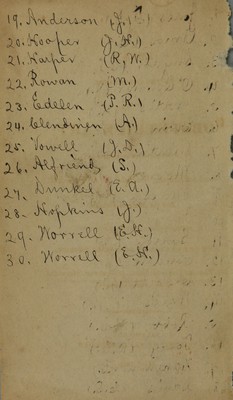 19. Anderson (J.)
20. Kooper (J. H.)
21. Kuper (R. W.)
22. Rowan (M.)
23. Edelen (P. R.)
24. Clendinien (A.)
25. Vowell (J. D.)
26. Alfriend (S.)
27. Dunkel (E. A.)
28. Hopkins (J.)
29. Worrell (E. H.)
30. Worrell (E. H.)